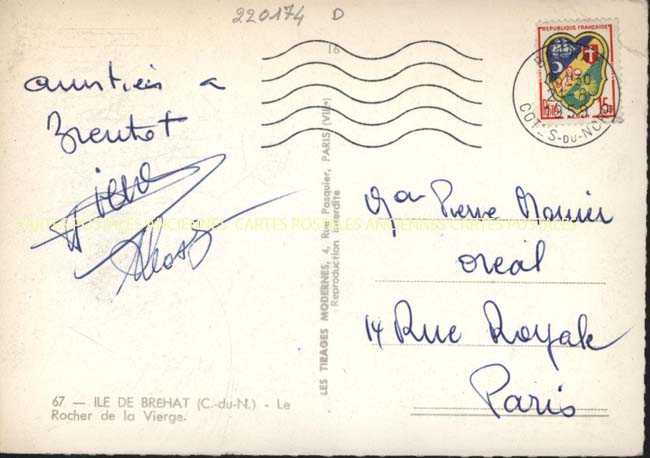 220174 D
16
amitiés a
Brehat
REPUBLIQUE FRANÇAISE
15F
COTES-DU-NORD
CARTES POSTALES ANCIENNES CARTES POSTALES ANCIENNES CARTES POSTALES
LES TIRAGES MODERNES, 4, Rue Pasquier, PARIS (VIIIe)
Reproduction interdite
Pierre
oréal
14 Rue Royale
Paris
67 — ILE DE BRÉHAT (C.-du-N.) - Le
Rocher de la Vierge.